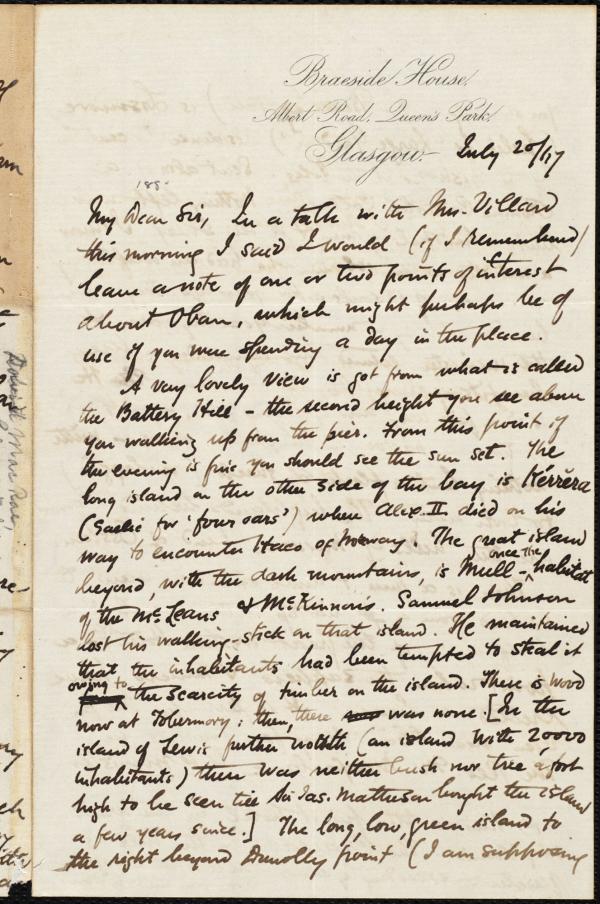 Braeside House,
Albert Road, Queen's Park,
Glasgow.— July 20/77
188-
My Dear Sir, In a talk with Mrs. Villard
this morning I said I would (if I remembered)
leave a note of one or two points of interest
about Oban, which might perhaps be of
use if you were spending a day in the place.
A very lovely view is got from what is called
the Battery Hill – the second height you see above
you walking up from the pier. From this point if
the evening is fine you should see the sun set. The
long island on the other side of the bay is Kerrera
(Gaelic for 'four oars') where Alex. II died on his
way to encounter Haco of Norway. The great island
beyond, with the dark mountains, is Mull – once the habitat
of the McLeans & McKinnons. Samuel Johnson
lost his walking-stick on that island. He maintained
that the inhabitants had been tempted to steal it
owing to the scarcity of timber on the island. There is wood
now at Tobermory: then, there was none [In the
island of Lewis further north (an island with 20000
inhabitants) there was neither bush nor tree a foot
high to be seen till Sir Jas. Matheson bought the island
a few years since.] The long, low, green island to
the right beyond Dunolly point (I am supposing